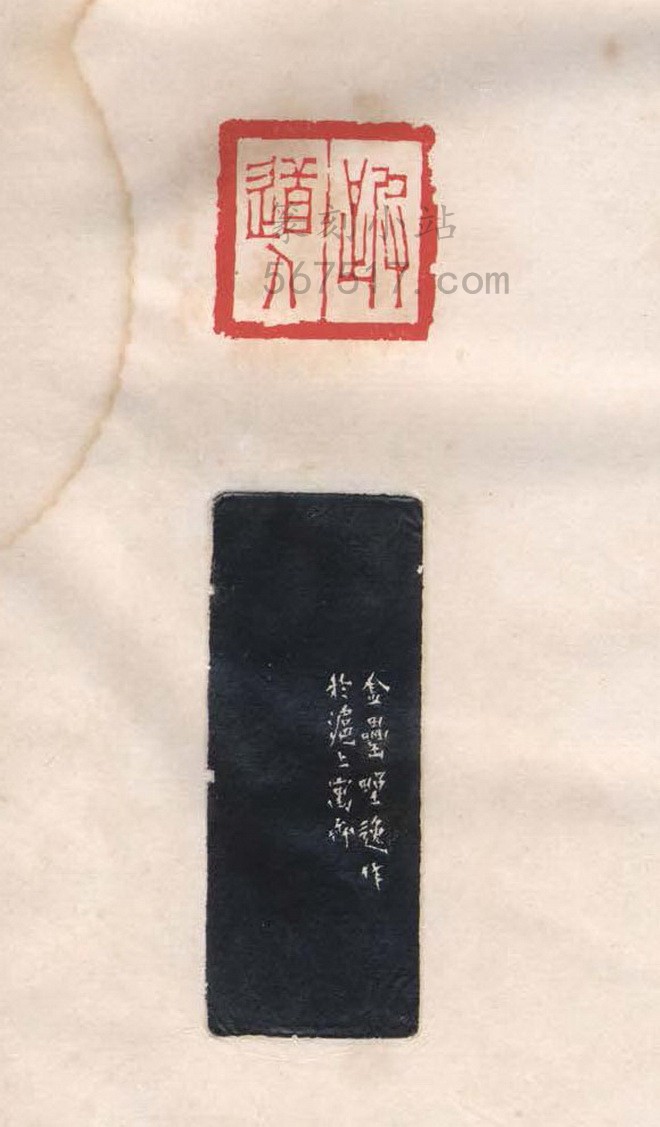 道人
篆刻小站
567517.com
金罍野逸作
於滬上寓齋